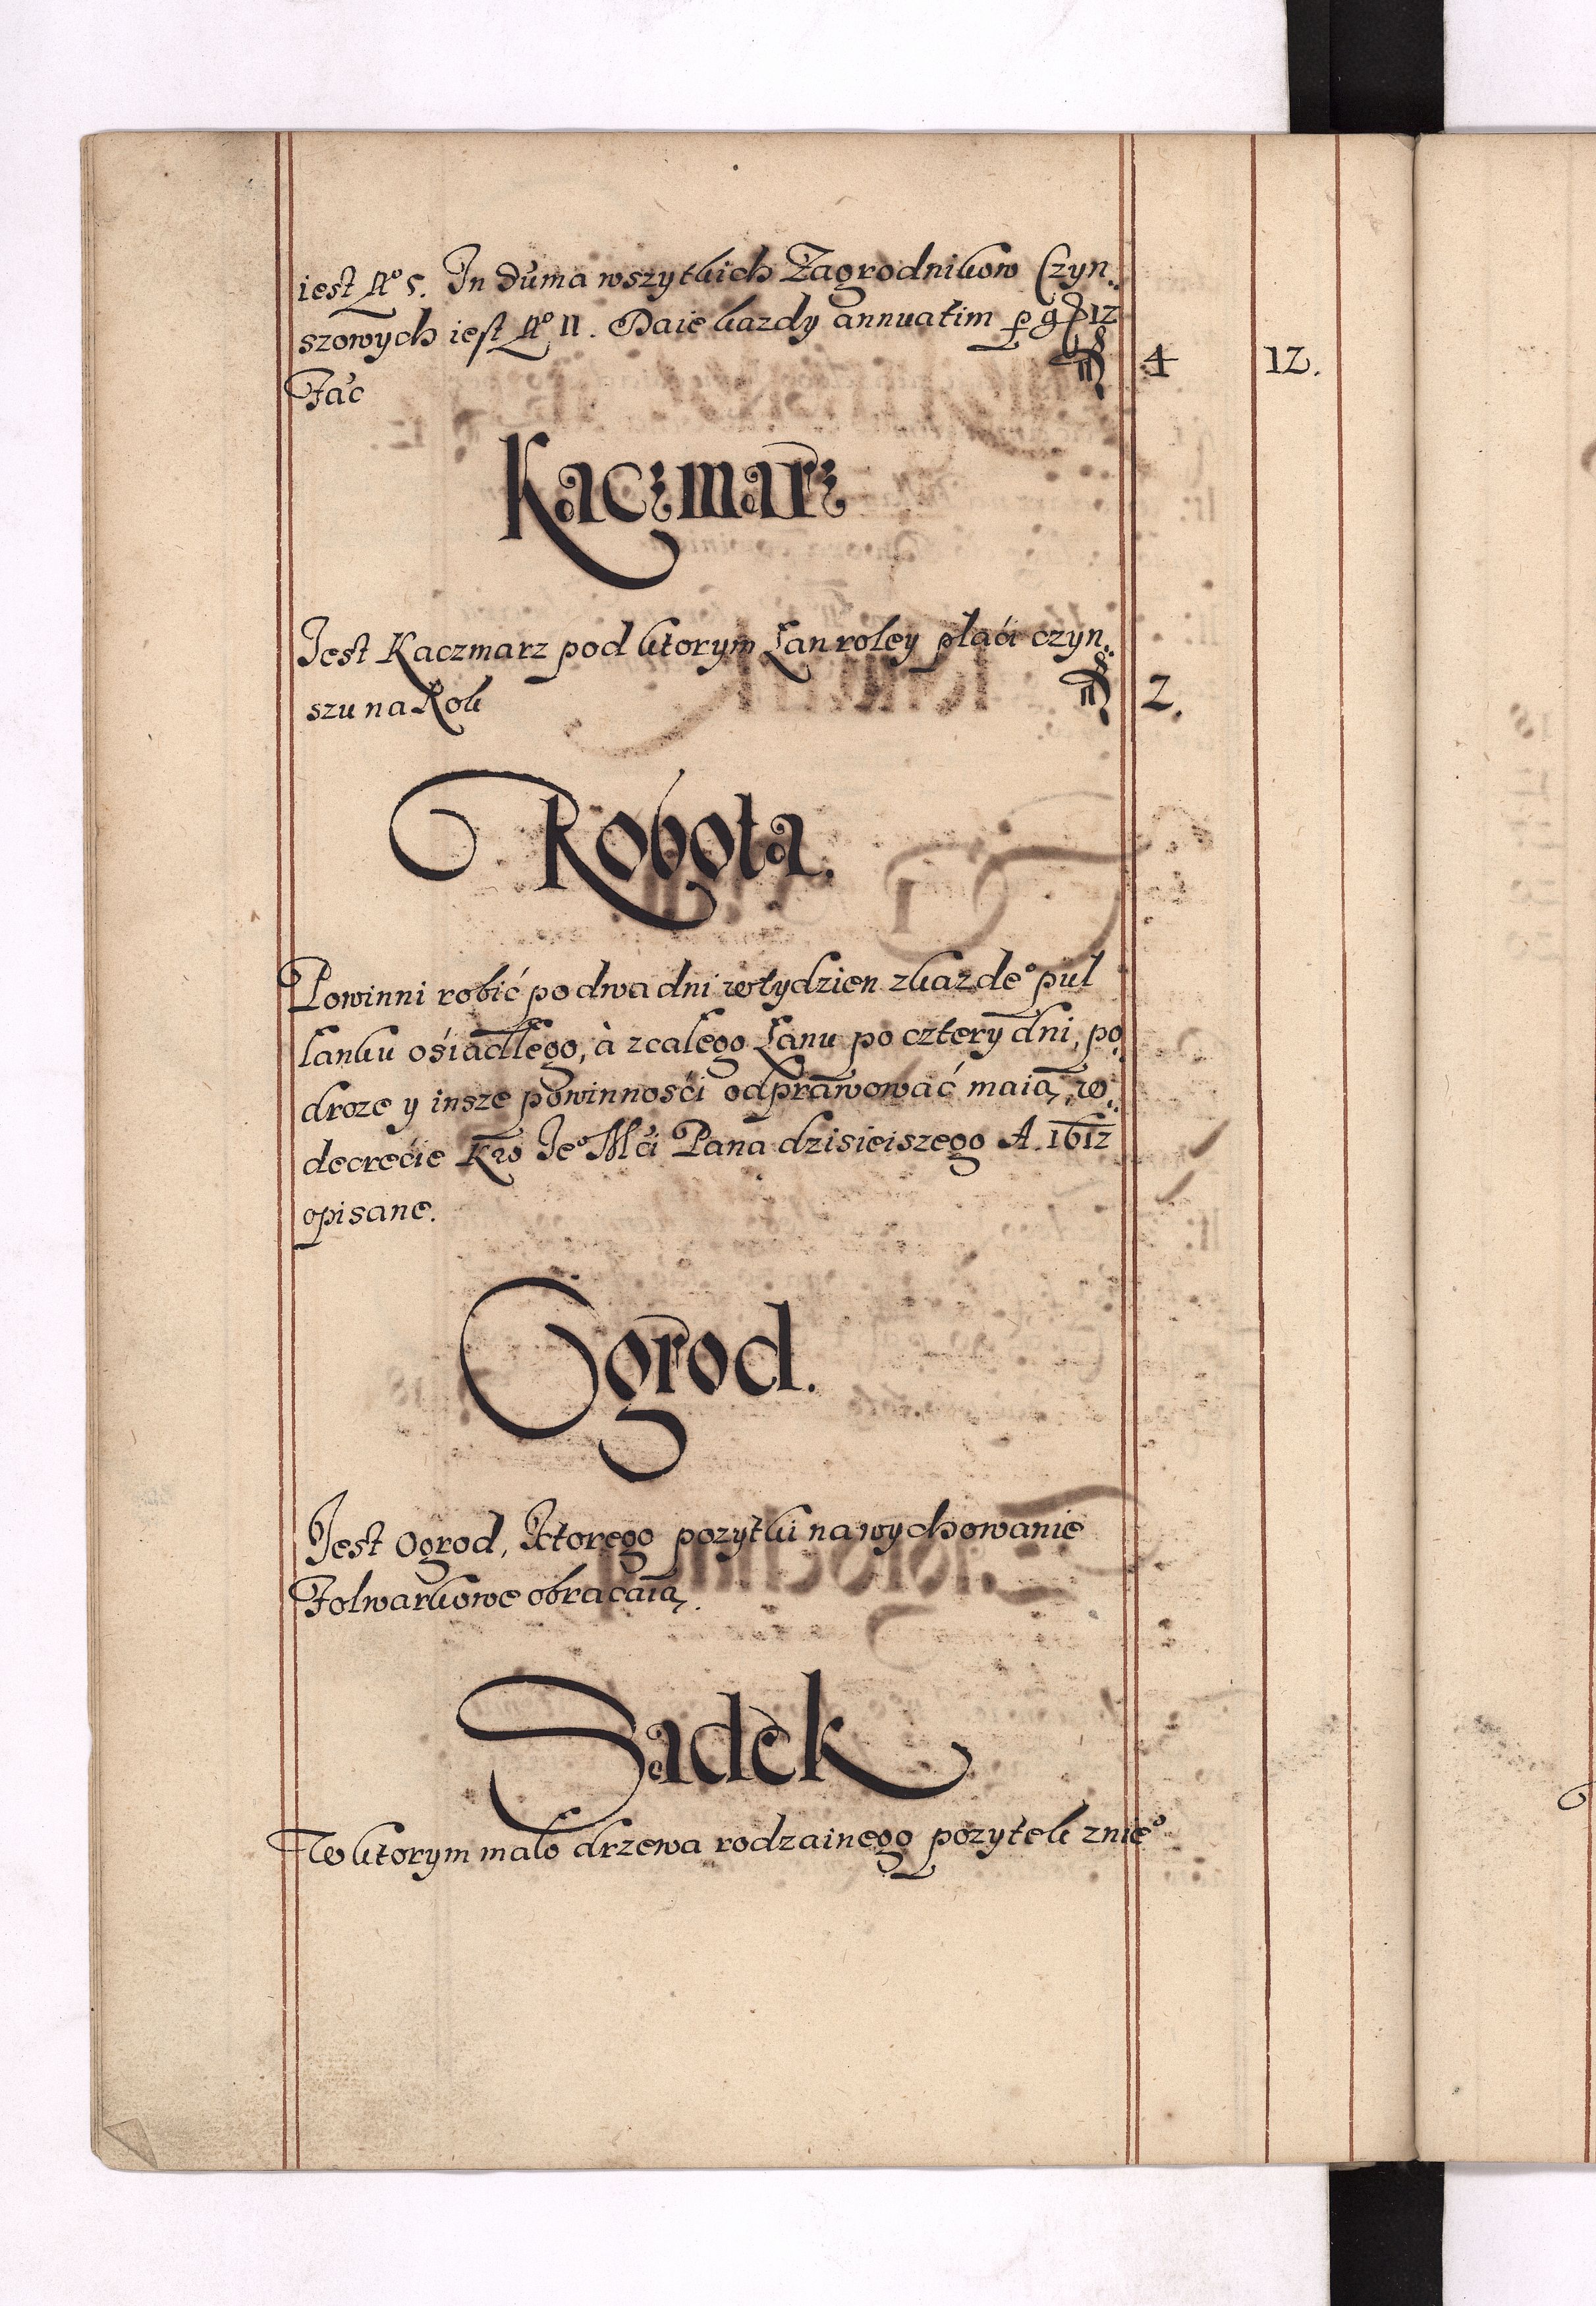 iest No 5. In Suma wszytkich Zagrodnikow Czyn:
szowych iest No 11. Daie kazdy annuatim p g 12
Fac 4 12.
Kaczmarz
Jest Kaczmarz pod ktorym Łan roley płaći czyn:
szu na Rok 2.
Robota.
Powinni robić po dwa dni w tydzien z kazdeo puł
łanku ośiadłego, à z całego Łanu po cztery dni, po
droze y insze powinnośći odprawować maią, w:
decrećie Kro Jeo Mći Pana dzisieiszego A. 1612
opisane.
Ogrod.
Jest Ogrod, Ktorego pozytki na wychowanie
Folwarkowe obracaią.
Sadek
W ktorym mało drzewa rodzainego pozytek z nieo